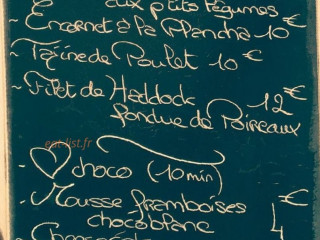 aux p'tits légumes €
~ Encornet à la Plancha 10 €
~ Tajine de Poulet 10 €
~ Filet de Haddock 12 €
fondue de Poireaux
eat-list.fr
- ♡ choco (10 min)
- Mousse framboises
chocoblanc 4 €